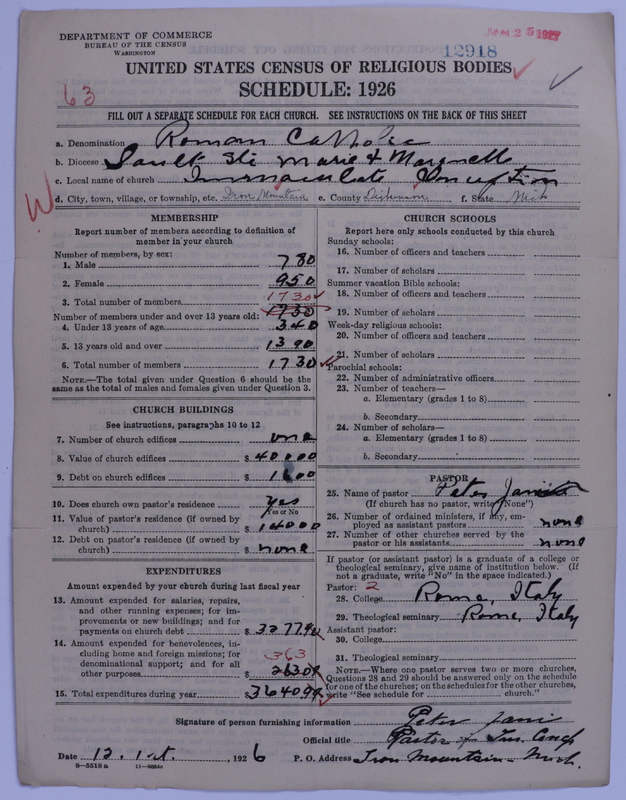 DEPARTMENT OF COMMERCE
BUREAU OF THE CENSUS
WASHINGTON
JAN 25 1927
12918
UNITED STATES CENSUS OF RELIGIOUS BODIES
SCHEDULE: 1926
63
FILL OUT A SEPARATE SCHEDULE FOR EACH CHURCH. SEE INSTRUCTIONS ON THE BACK OF THIS SHEET
a. Denomination Roman Catholic
b. Diocese Sault Ste Marie & Marquette
c. Local name of church Immaculate Conception
d. City, town, village, or township, etc. Iron Mountain e. County Dickinson f. State Mich
W
MEMBERSHIP
Report number of members according to definition of member in your church
Number of members, by sex:
1. Male 780
2. Female 950
1730
3. Total number of members 1730
Number of members under and over 13 years old:
4. Under 13 years of age 340
5. 13 years old and over 1390
6. Total number of members 1730
NOTE.—The total given under Question 6 should be the same as the total of males and females given under Question 3.
CHURCH BUILDINGS
See instructions, paragraphs 10 to 12
7. Number of church edifices one
8. Value of church edifices $ 40000
9. Debt on church edifices $ 1600
10. Does church own pastor's residence yes
Yes or No
11. Value of pastor's residence (if owned by church) $ 14000
12. Debt on pastor's residence (if owned by church) $ none
EXPENDITURES
Amount expended by your church during last fiscal year
13. Amount expended for salaries, repairs, and other running expenses; for improvements or new buildings; and for payments on church debt $ 3277.90
14. Amount expended for benevolences, including home and foreign missions; for denominational support; and for all other purposes $
363
15. Total expenditures during year $ 3640.90
CHURCH SCHOOLS
Report here only schools conducted by this church
Sunday schools:
16. Number of officers and teachers
17. Number of scholars
Summer vacation Bible schools:
18. Number of officers and teachers
19. Number of scholars
Week-day religious schools:
20. Number of officers and teachers
21. Number of scholars
Parochial schools:
22. Number of administrative officers
23. Number of teachers—
a. Elementary (grades 1 to 8)
b. Secondary
24. Number of scholars—
a. Elementary (grades 1 to 8)
b. Secondary
PASTOR
25. Name of pastor Peter Jani
(If church has no pastor, write "None")
26. Number of ordained ministers, if any, employed as assistant pastors none
27. Number of other churches served by the pastor or his assistants none
If pastor (or assistant pastor) is a graduate of a college or theological seminary, give name of institution below. (If not a graduate, write "No" in the space indicated.)
Pastor: 2
28. College Rome, Italy
29. Theological seminary Rome, Italy
Assistant pastor:
30. College
31. Theological seminary
NOTE.—Where one pastor serves two or more churches, Questions 28 and 29 should be answered only on the schedule for one of the churches; on the schedules for the other churches, write "See schedule for church."
Signature of person furnishing information Peter Jani
Official title Pastor of Im. Concep
Date 12. 1st., 1926 P. O. Address Iron Mountain - Mich.
8—5518 a